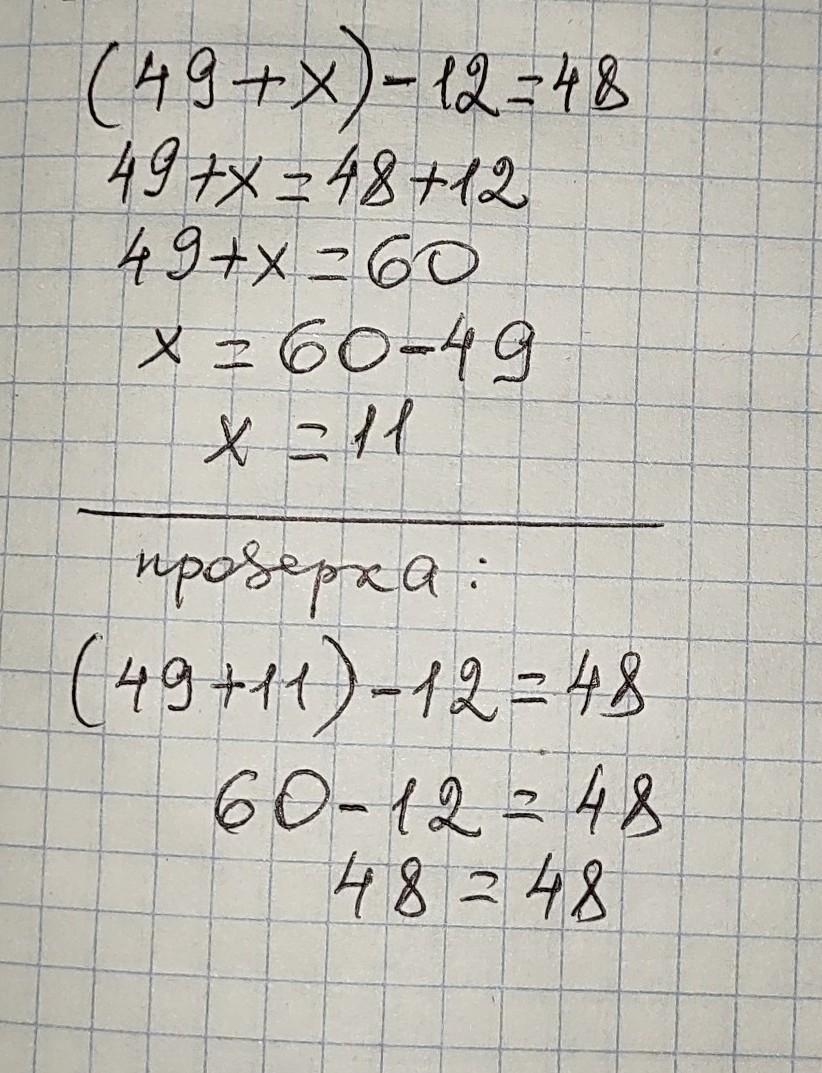 (49+x)-12=48
49+x=48+12
49+x=60
x=60-49
x=11
проверка:
(49+11)-12=48
60-12=48
48=48